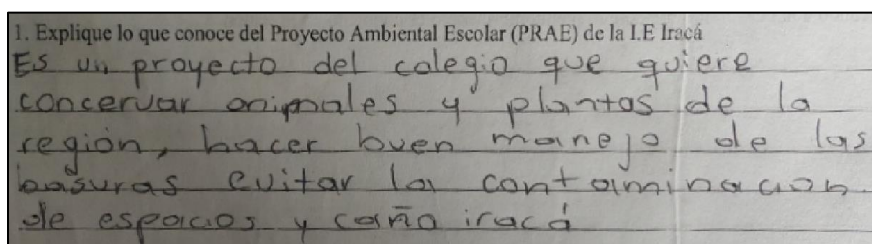 1. Explique lo que conoce del Proyecto Ambiental Escolar (PRAE) de la I.E Iracá
Es un proyecto del colegio que quiere
concervar animales y plantas de la
región, hacer buen manejo de las
basuras evitar la contaminacion
de espacios y caño iracá